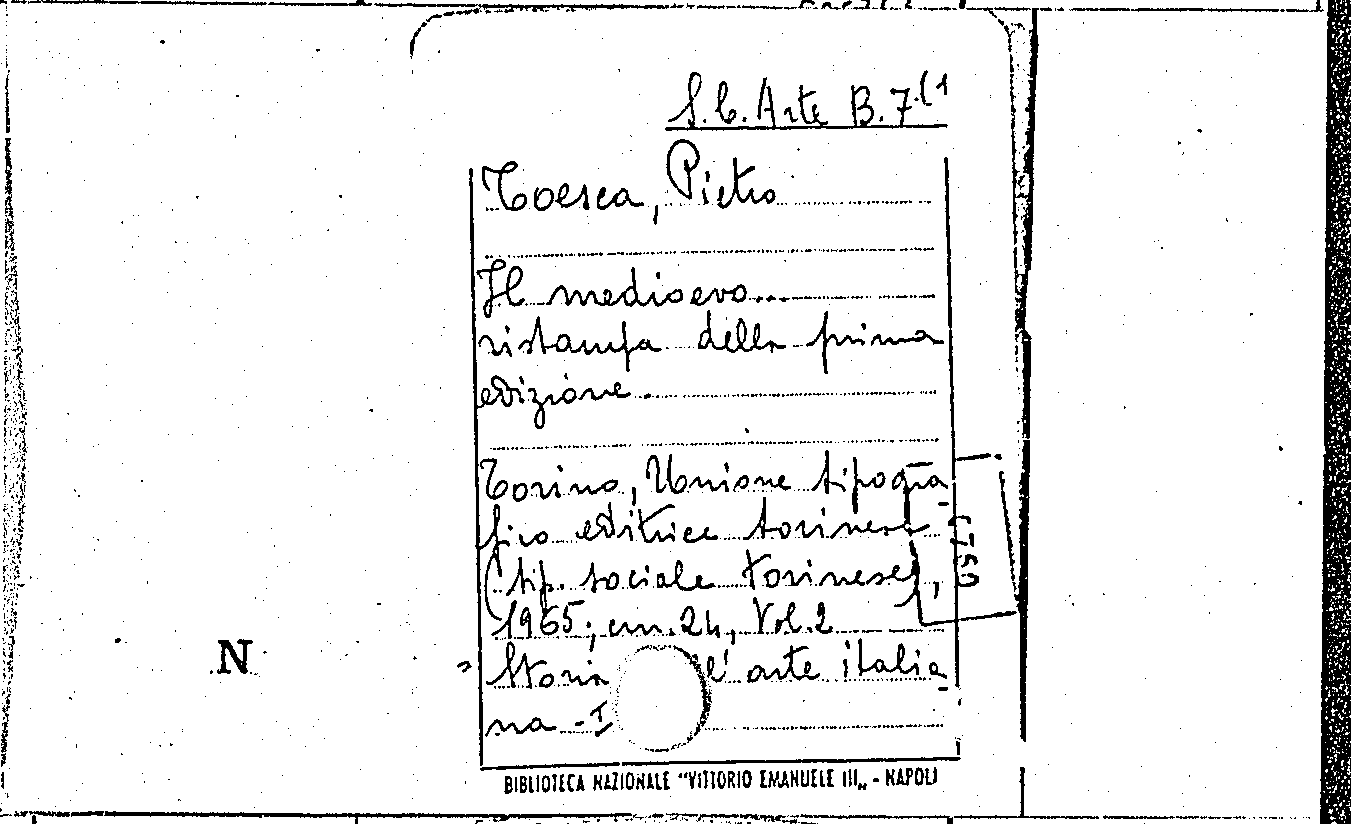 S.C. Arte B.7(1
Toesca, Pietro
Il medioevo...
ristampa della prima
edizione.
Torino, Unione tipogra-
fico editrice torinese
(tip. sociale torinese),
1965; cm. 24, Vol. 2
N
" Storia l'arte italia-
na - I
BIBLIOTECA NAZIONALE "VITTORIO EMANUELE III„ - NAPOLI